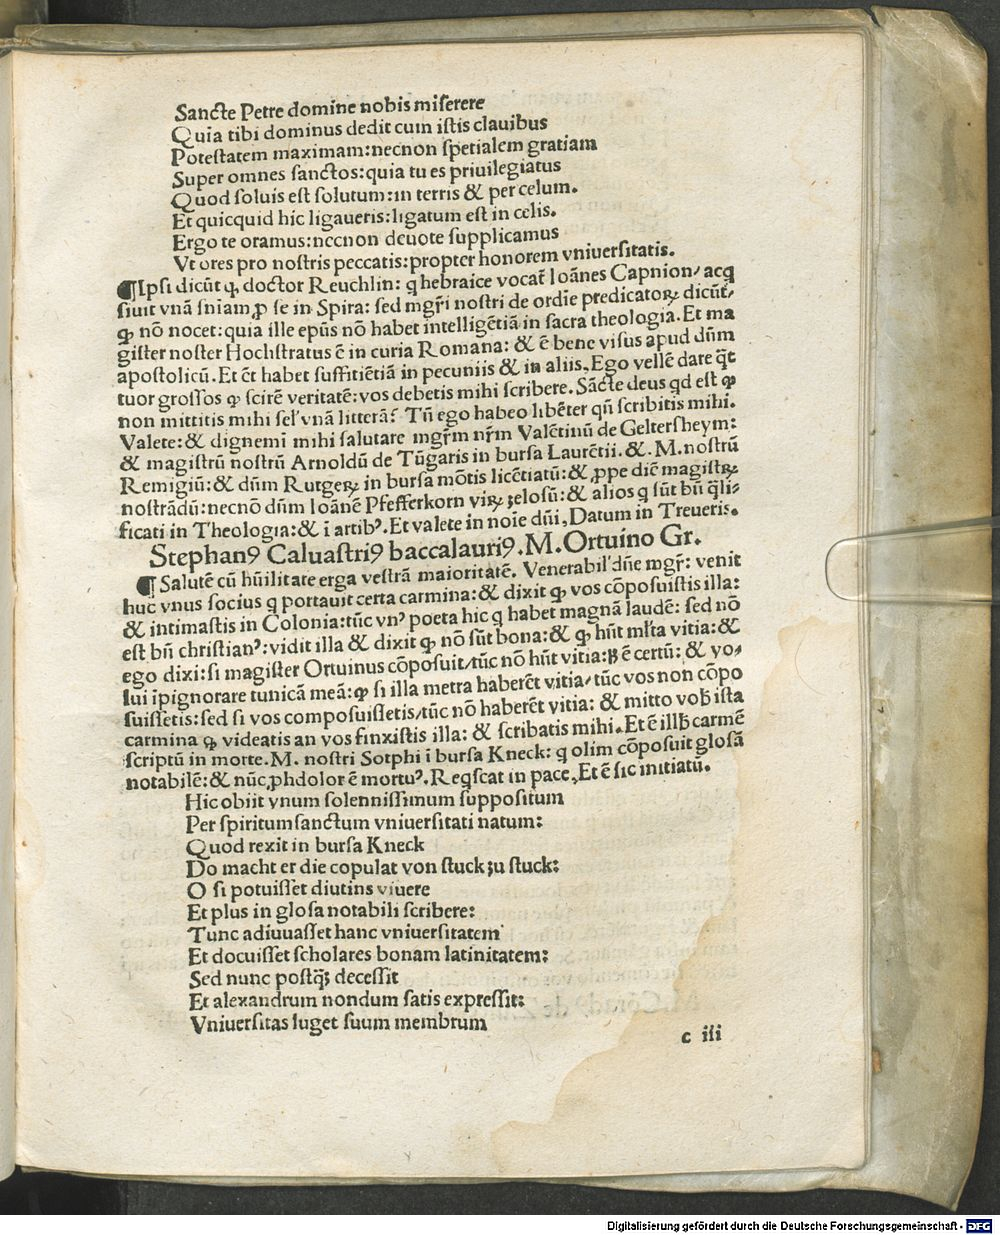 Sancte Petre domine nobis miserere
Quia tibi dominus dedit cum istis clauibus
Potestatem maximam:necnon spetialem gratiam
Super omnes sanctos:quia tu es priuilegiatus
Quod soluis est solutum:in terris & per celum.
Et quicquid hic ligaueris:ligatum est in celis.
Ergo te oramus:necnon deuote supplicamus
Vt ores pro nostris peccatis:propter honorem vniuersitatis.
¶Ipsi dicūt ꝙ doctor Reuchlin: q hebraice vocat̄ Ioānes Capnion/ acq
siuit vnā sniam ꝓ se in Spira: sed mgr̄i nostri de ordīe predicatoꝝ dicūt/
ꝙ nō nocet:quia ille ep̄us nō habet intelligētiā in sacra theologia. Et ma
gister noster Hochstratus ē in curia Romana: & ē bene visus apud dūm
apostolicū. Et et̄ habet suffitiētiā in pecuniis & in aliis. Ego vellē dare q̄t
tuor grossos ꝙ scirē veritatē:vos debetis mihi scribere. Sācte deus qd est ꝙ
non mittitis mihi sel' vnā litterā? Tn̄ ego habeo libēter qn̄ scribitis mihi.
Valete:& dignemī mihi salutare mgr̄m nr̄m Valētinū de Geltersheym:
& magistrū nostrū Arnoldū de Tūgaris in bursa Laurētii. &. M. nostrū
Remigiū:& dūm Rutgeꝝ in bursa mōtis licētiatū:& ꝓpe diē magistꝝ
nostrādū:necnō dūm Ioānē Pfefferkorn viꝝ ʒelosū:& alios q sūt bn̄ q̄li⸗
ficati in Theologia:& ī artibꝰ. Et valete in noīe dn̄i. Datum in Treueris.
Stephanꝰ Caluastriꝰ baccalauriꝰ. M. Ortuino Gr.
¶ Salutē cū hūilitate erga vestrā maioritatē. Venerabil' dn̄e mgr̄: venit
huc vnus socius q portauit certa carmina:& dixit ꝙ vos cōposuistis illa:
& intimastis in Colonia:tūc vnꝰ poeta hic q habet magnā laudē: sed nō
est bn̄ christianꝰ:vidit illa & dixit ꝙ nō sūt bona:& ꝙ hūt ml̄ta vitia:&
ego dixi:si magister Ortuinus cōposuit/tūc nō hūt vitia:ꝶ ē certū: & vo⸗
lui īpignorare tunicā meā:ꝙ si illa metra haberēt vitia/ tūc vos non cōpo
suissetis:sed si vos composuissetis/tūc nō haberēt vitia: & mitto vob̄ ista
carmina ꝙ videatis an vos finxistis illa: & scribatis mihi. Et ē illb̄ carmē
scriptū in morte. M. nostri Sotphi ī bursa Kneck: q olim cōposuit glosā
notabilē:& nūc ꝓhdolor ē mortuꝰ. Reqscat in pace. Et ē sic initiatū.
Hic obiit vnum solennissimum suppositum
Per spiritum sanctum vniuersitati natum:
Quod rexit in bursa Kneck
Do macht er die copulat von stuck ʒu stuck:
O si potuisset diutins viuere
Et plus in glosa notabili scribere:
Tunc adiuuasset hanc vniuersitatem
Et docuisset scholares bonam latinitatem:
Sed nunc postq̄ʒ decessit
Et alexandrum nondum satis expressit:
Vniuersitas luget suum membrum
c iii
Digitalisierung gefördert durch die Deutsche Forschungsgemeinschaft - DFG